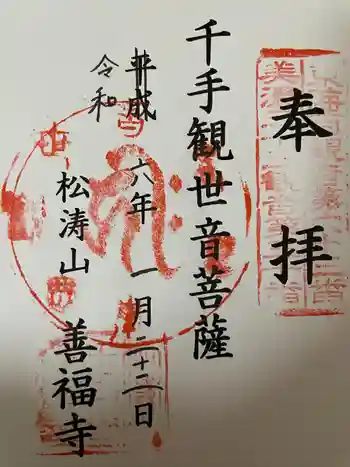 奉拝
千手観世音菩薩
平成
令和
六年一月二十二日
松涛山
善福寺